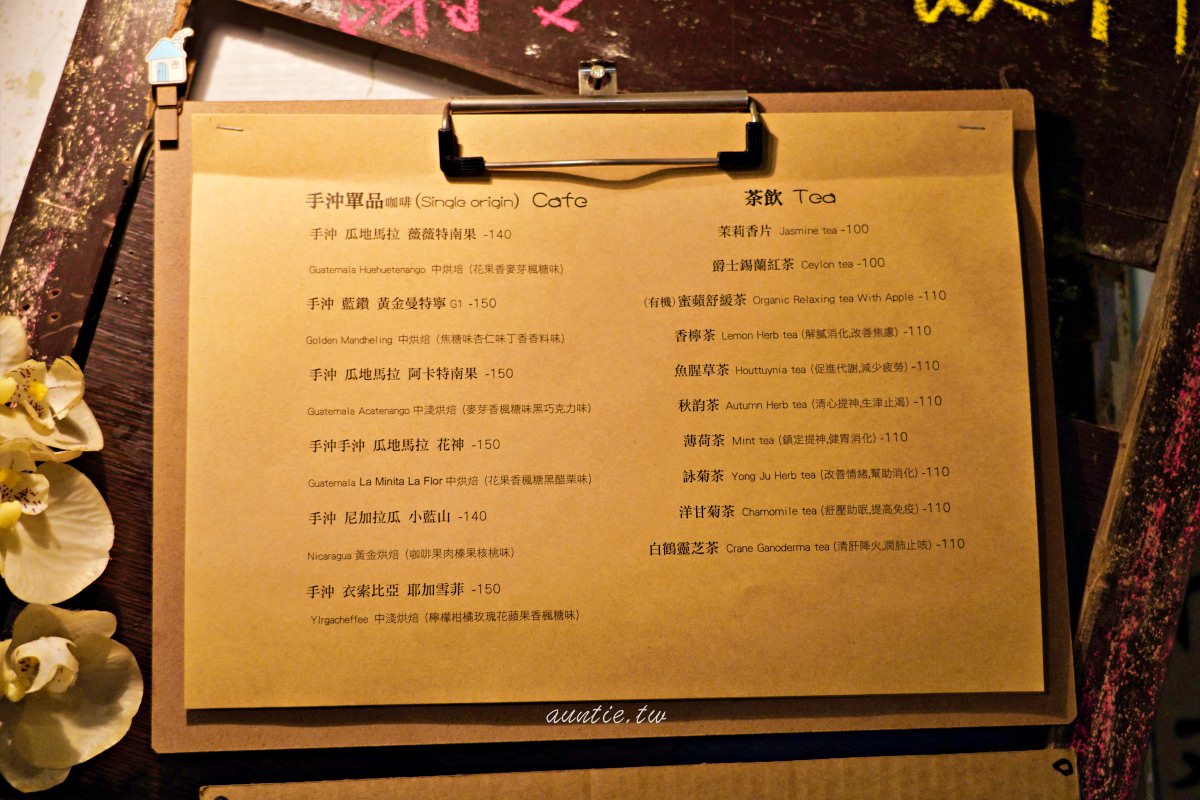 手沖單品咖啡(Single origin) Cafe
手沖 瓜地馬拉 薇薇特南果 -140
Guatemala Huehuetenango 中烘培 (花果香麥芽楓糖味)
手沖 藍鑽 黃金曼特寧 G1 -150
Golden Mandheling 中烘焙 (焦糖味杏仁味丁香香料味)
手沖 瓜地馬拉 阿卡特南果 -150
Guatemala Acatenango 中淺烘焙 (麥芽香楓糖味黑巧克力味)
手沖手沖 瓜地馬拉 花神 -150
Guatemala La Minita La Flor 中烘焙 (花果香楓糖黑醋栗味)
手沖 尼加拉瓜 小藍山 -140
Nicaragua 黃金烘焙 (咖啡果肉榛果核桃味)
手沖 衣索比亞 耶加雪菲 -150
YIrgacheffee 中淺烘焙 (檸檬柑橘玫瑰花蘋果香楓糖味)
茶飲 Tea
茉莉香片 Jasmine tea -100
爵士錫蘭紅茶 Ceylon tea -100
(有機)蜜蘋舒緩茶 Organic Relaxing tea With Apple -110
香檸茶 Lemon Herb tea (解膩消化,改善焦慮) -110
魚腥草茶 Houttuynia tea (促進代謝,減少疲勞) -110
秋韵茶 Autumn Herb tea (清心提神,生津止渴) -110
薄荷茶 Mint tea (鎮定提神,健胃消化) -110
詠菊茶 Yong Ju Herb tea (改善情緒,幫助消化) -110
洋甘菊茶 Chamomile tea (舒壓助眠,提高免疫) -110
白鶴靈芝茶 Crane Ganoderma tea (清肝降火,潤肺止咳) -110
auntie.tw